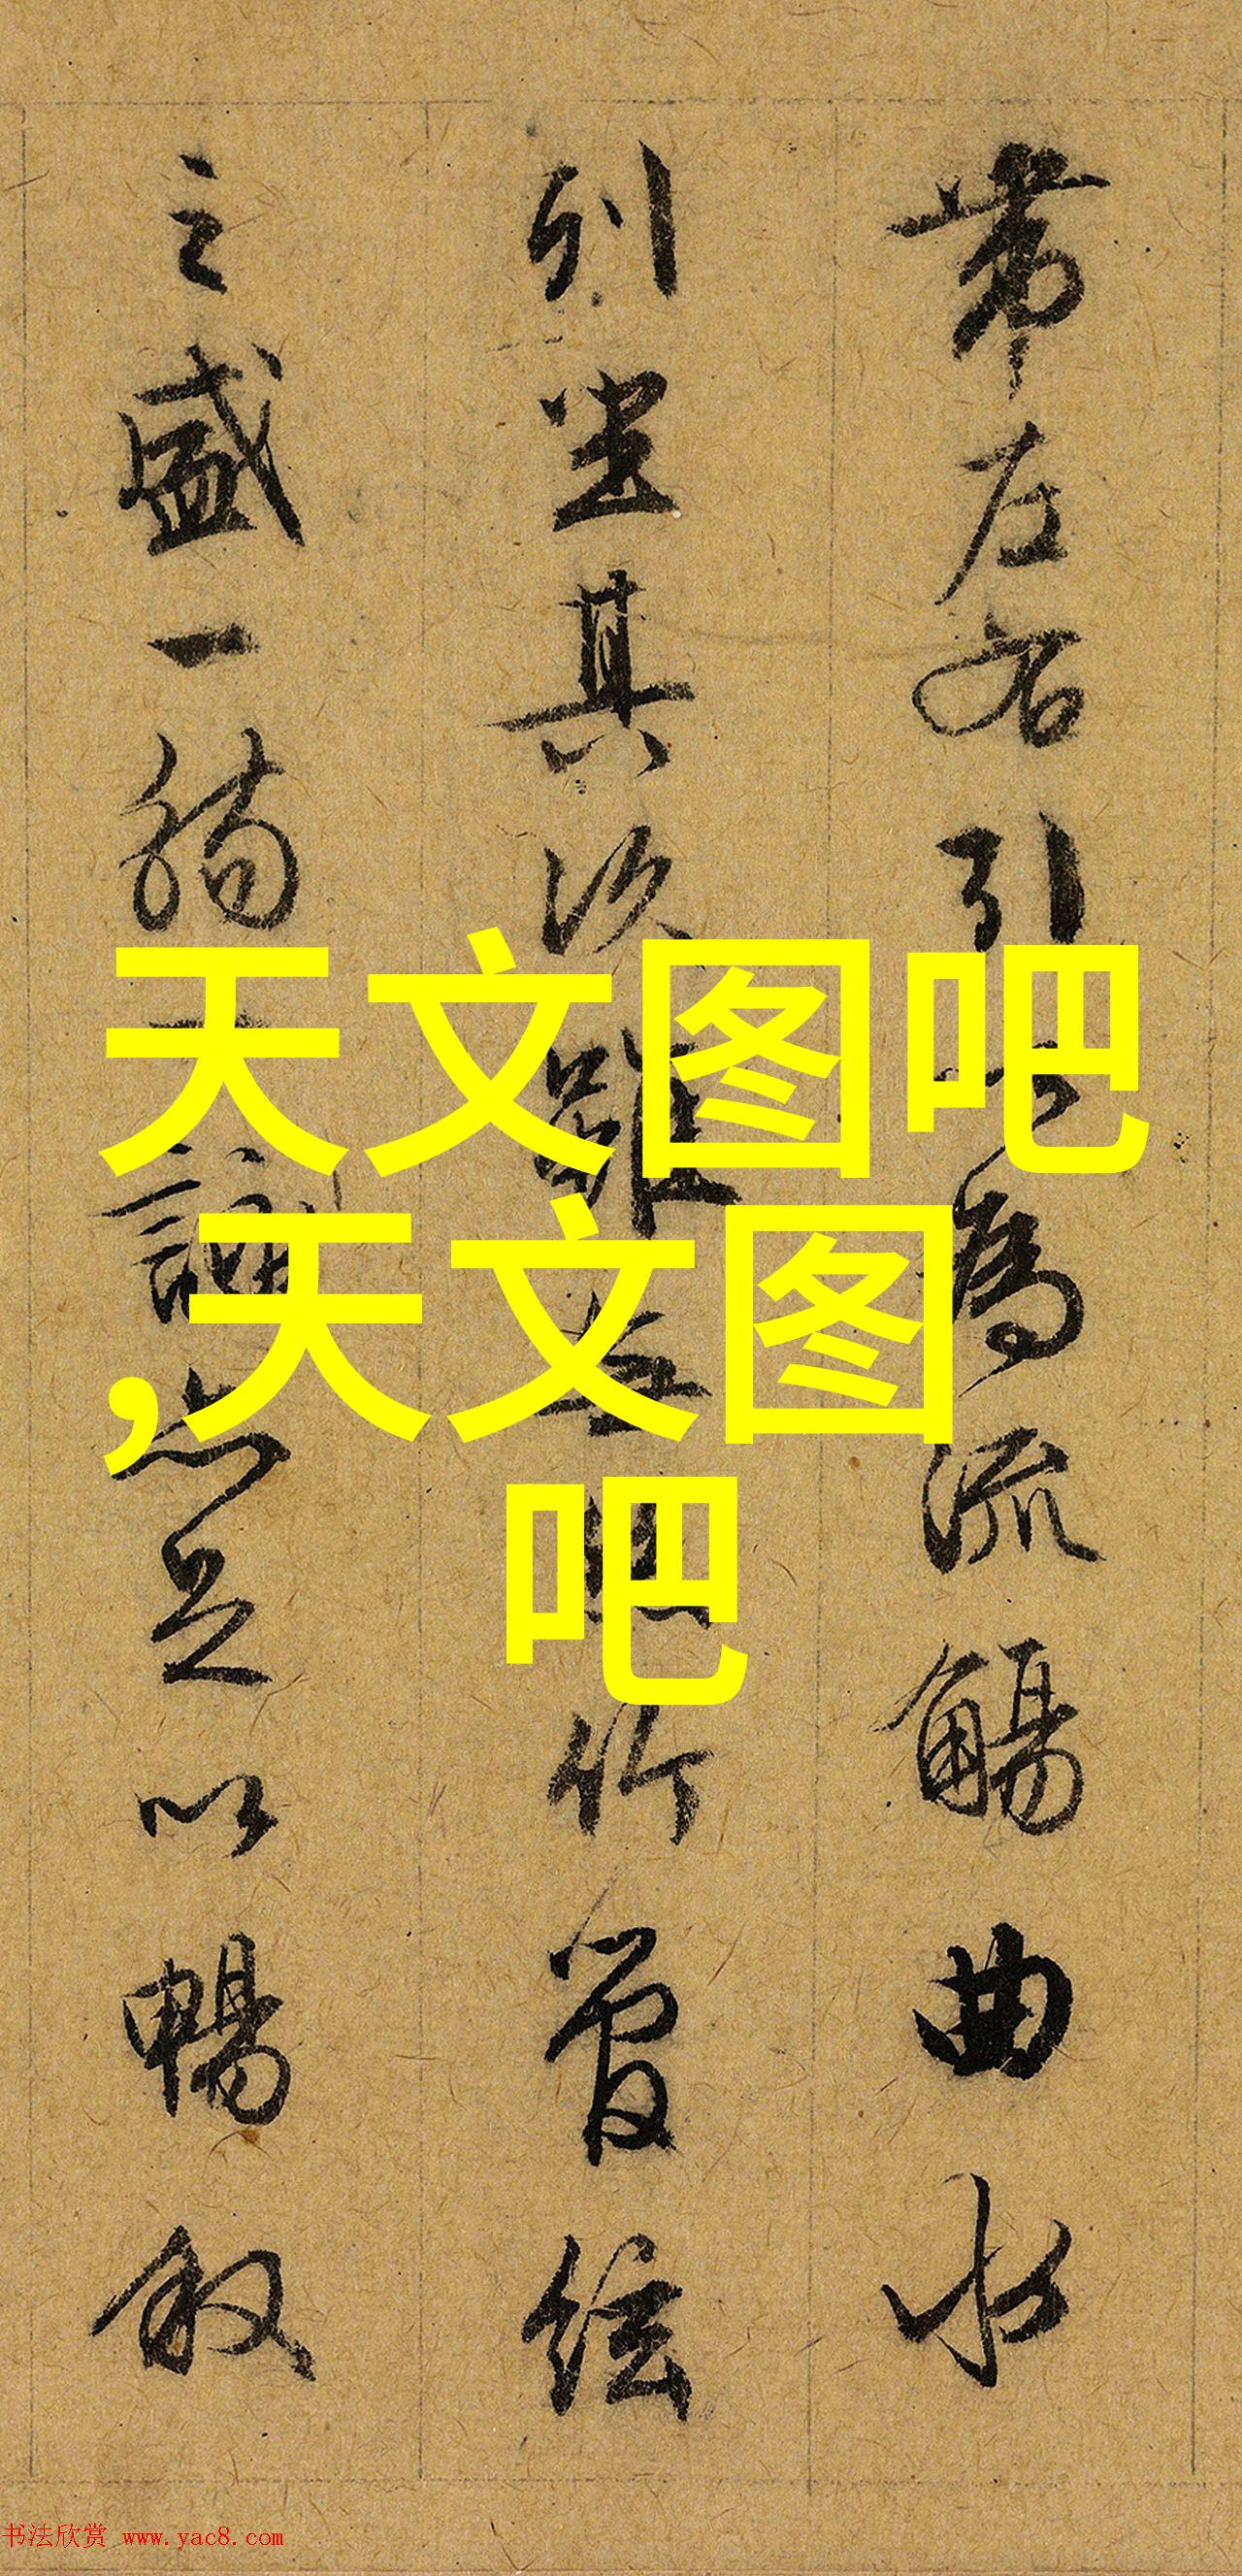 帶左右引為流觴曲水
列坐其次雖竹管絃
之盛一觴詠亦足以暢敘
天文图吧
,天文图
吧
书法欣赏 www.yac8.com